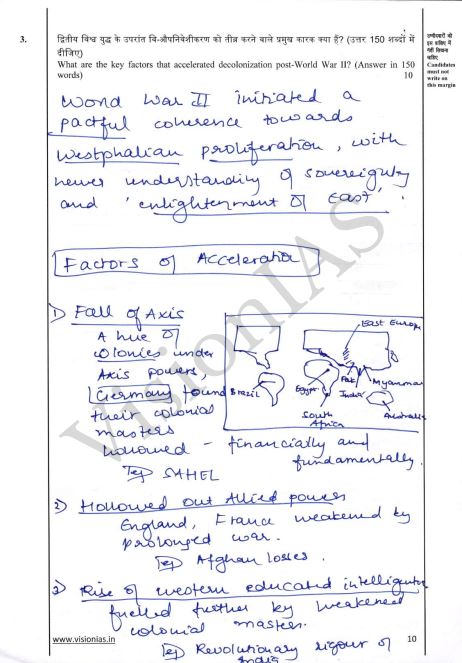 3.
द्वितीय विश्व युद्ध के उपरांत वि-औपनिवेशीकरण को तीव्र करने वाले प्रमुख कारक क्या हैं? (उत्तर 150 शब्दों में
दीजिए)
What are the key factors that accelerated decolonization post-World War II? (Answer in 150
words) 10
उम्मीदवारों को
इस हाशिए में
नहीं लिखना
चाहिए
Candidates
must not
write on
this margin
World War II initiated a
pactful coherence towards
Westphalian proliferation, with
newer understanding of sovereignty
and 'enlightenment of East'
Factors of Acceleration
1) Fall of Axis
A hue of
colonies under
Axis powers,
Germany found
their colonial
masters
hollowed - financially and
fundamentally.
eg SAHEL
East Europe
Brazil
Egypt
Pak
India
Myanmar
South
Africa
Australia
2) Hollowed out Allied powers
England, France weakened by
prolonged war.
eg Afghan losses.
3) Rise of western educated intelligentsia
fuelled further by weakened
colonial masters.
eg Revolutionary vigour of
India
www.visionias.in
10
VisionIAS